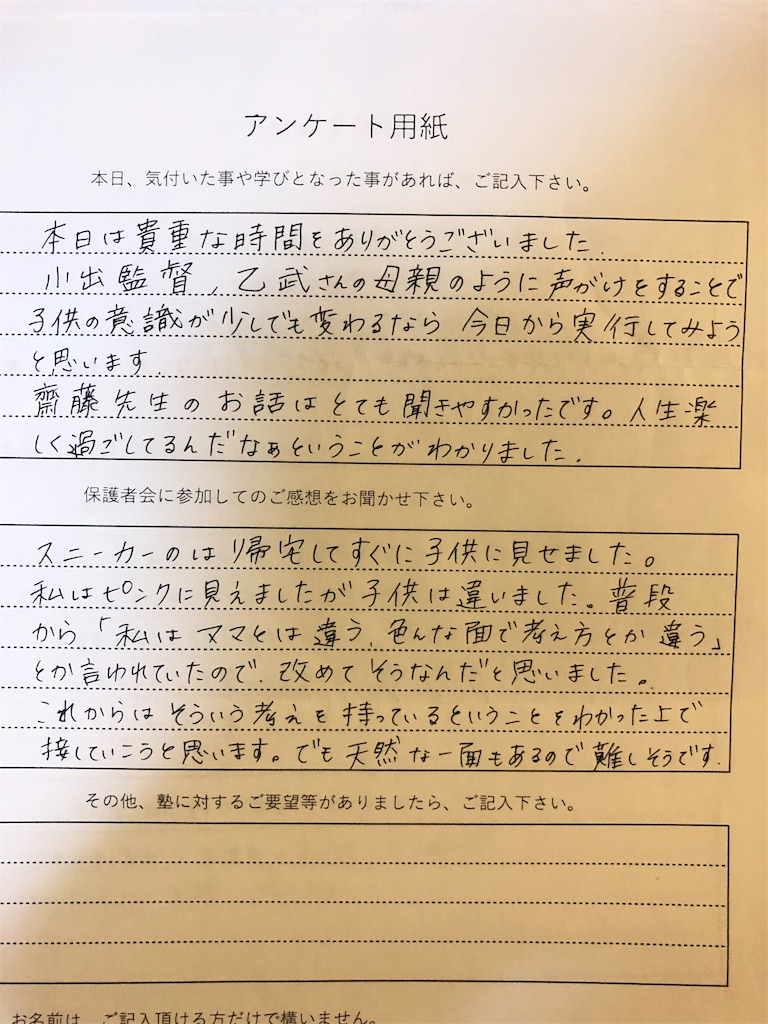 アンケート用紙
本日、気付いた事や学びとなった事があれば、ご記入下さい。
本日は貴重な時間をありがとうございました.
小出監督、乙武さんの母親のように声がけをすることで
子供の意識が少しでも変わるなら 今日から実行してみよう
と思います.
齋藤先生のお話はとても聞きやすかったです。人生楽
しく過ごしてるんだなぁということがわかりました.
保護者会に参加してのご感想をお聞かせ下さい。
スニーカーのは帰宅してすぐに子供に見せました。
私はピンクに見えましたが子供は違いました。普段
から「私はママとは違う、色んな面で考え方とか違う」
とか言われていたので、改めてそうなんだと思いました。
これからはそういう考えを持っているということをわかった上で
接していこうと思います。でも天然な一面もあるので難しそうです.
その他、塾に対するご要望等がありましたら、ご記入下さい。
お名前は、ご記入頂ける方だけで構いません。